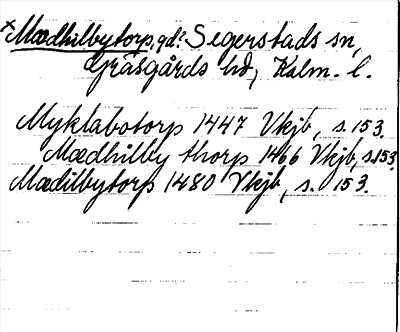 ×Mædhilbytorp, gd? Segerstads sn,
Gräsgårds hd, Kalm. l.
Myklabotorp 1447 Vkjb, s. 153.
Mædhilby thorp 1466 Vkjb, s. 153.
Mædilbytorp 1480 Vkjb, s. 153.